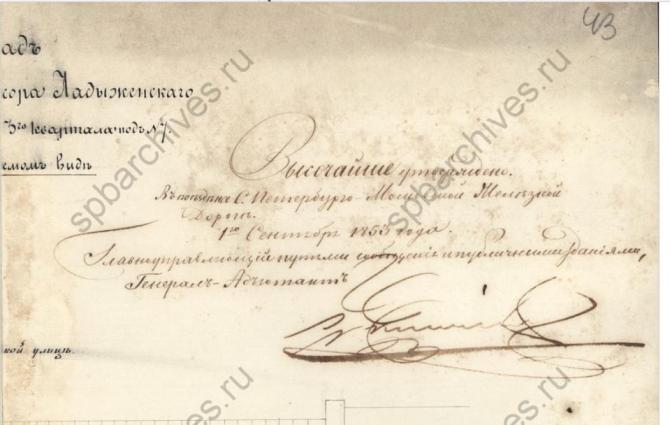 43
адъ
сора Ладыженскаго
3го квартала подъ №7.
емомъ видѣ
Высочайше утверждено.
Въ поѣздѣ С. Петербурго-Московской Желѣзной
Дороги.
1го Сентября 1853 года.
Главноуправляющій путями сообщенія и публичными зданіями,
Генералъ-Адъютантъ
кой улицѣ.
spbarchives.ru
spbarchives.ru
spbarchives.ru
spbarchives.ru